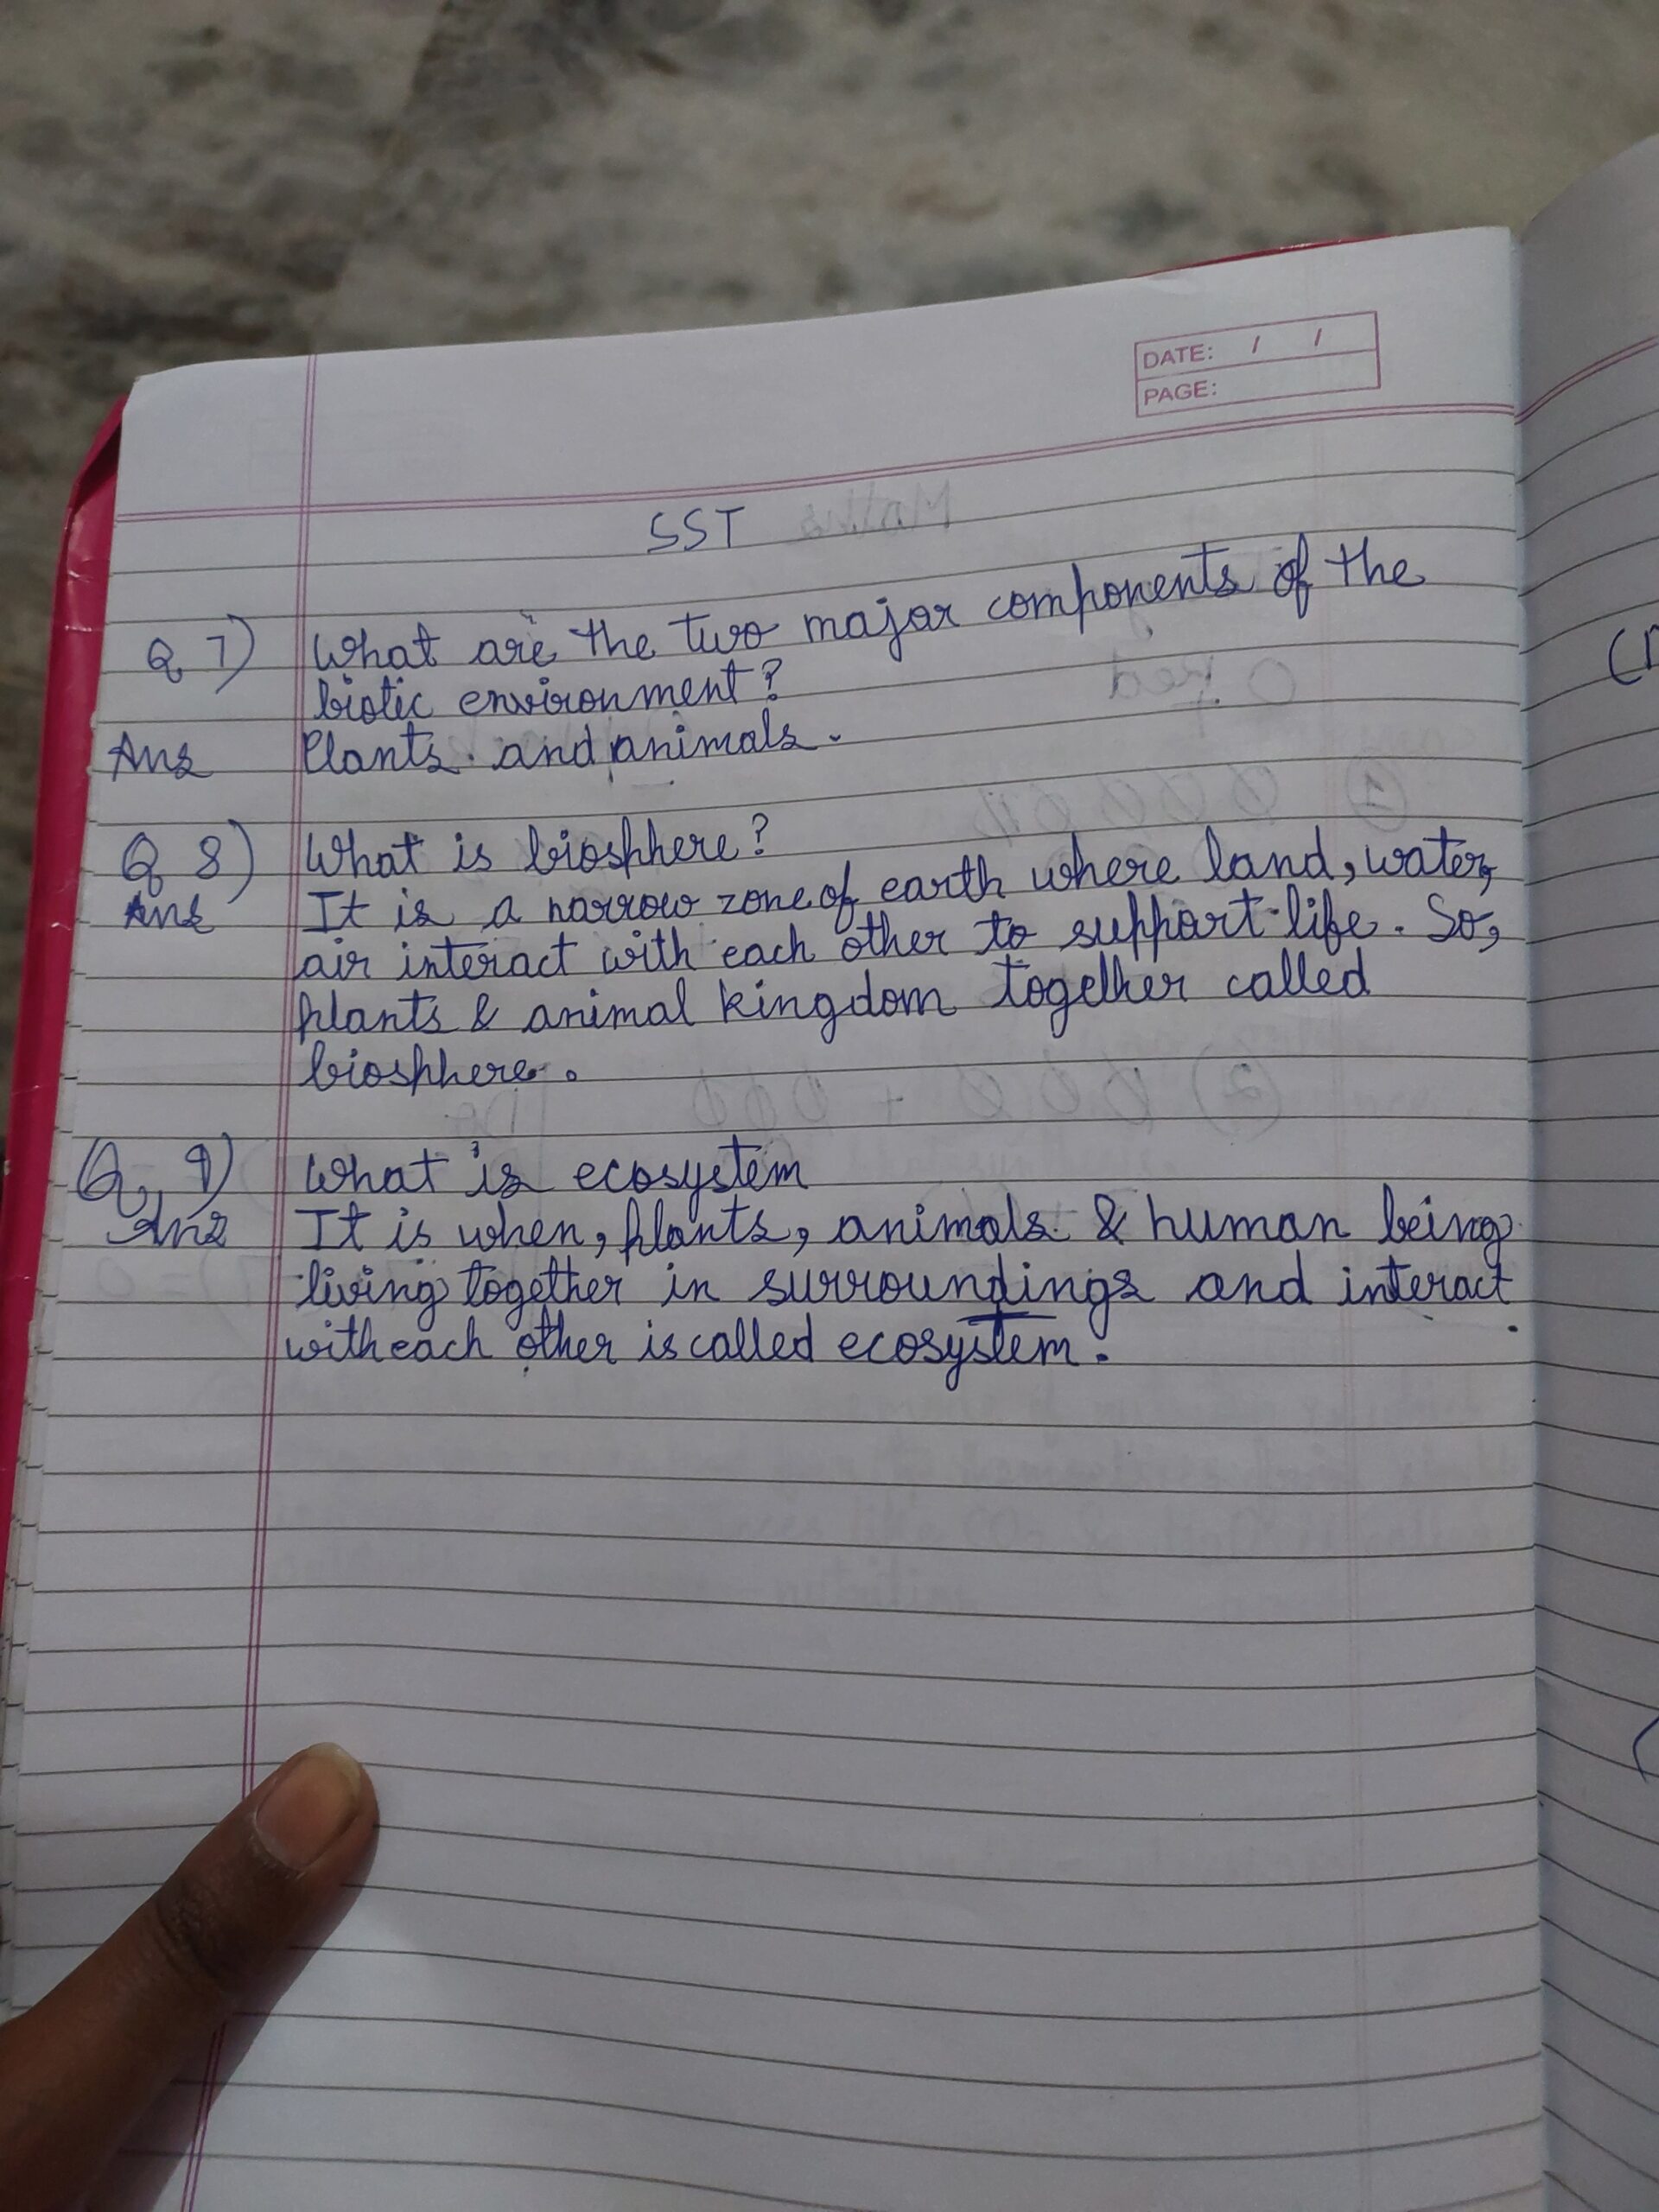 DATE: / /
PAGE:
SST
Q 7) What are the two major components of the
biotic environment?
Ans Plants and animals.
Q 8) What is biosphere?
Ans It is a narrow zone of earth where land, water,
air interact with each other to support life. So,
plants & animal kingdom together called
biosphere.
Q. 9) What is ecosystem
Ans It is when, plants, animals & human being
living together in surroundings and interact
with each other is called ecosystem.